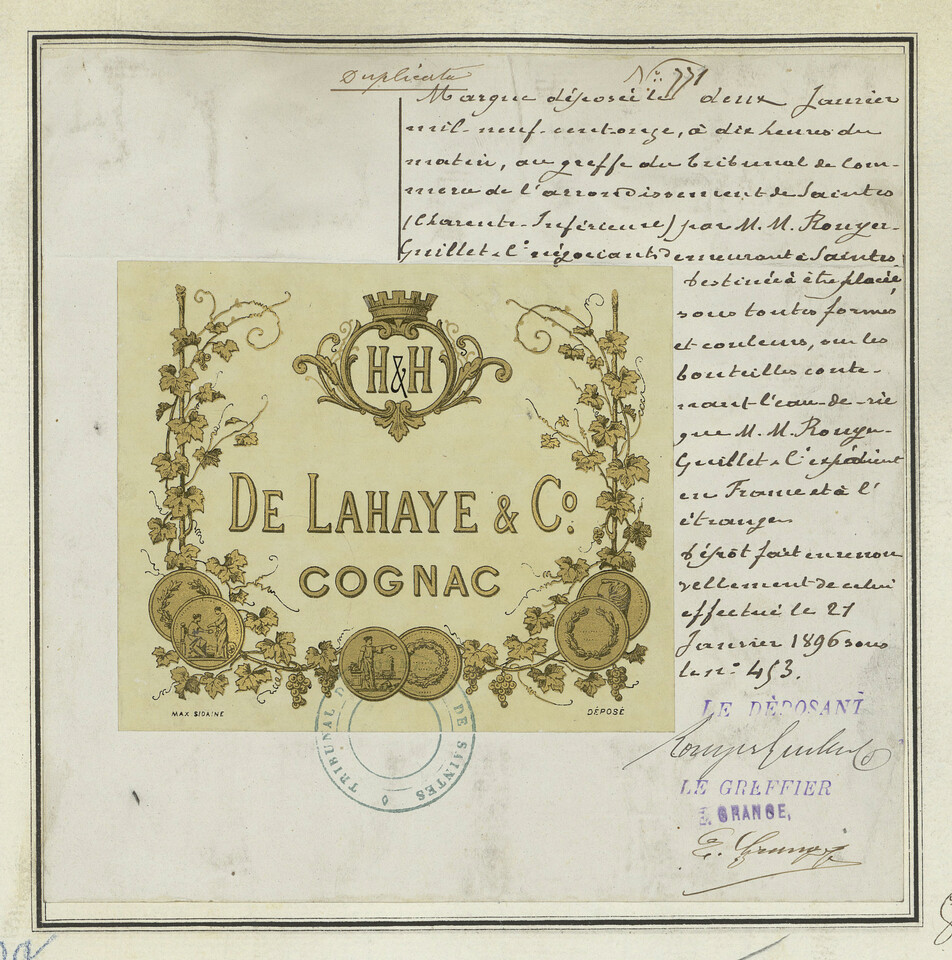 Duplicata
No 771
Marque déposée le deux Janvier
mil-neuf-cent-onze, à dix heures du
matin, au greffe du tribunal de Com-
merce de l'arrondissement de Saintes
(Charente-Inférieure) par M.M. Rouyer-
Guillet & Cie négociants demeurant à Saintes,
destinée à être placée,
sous toutes formes
et couleurs, sur les
bouteilles conte-
nant l'eau-de-vie
que M.M. Rouyer-
Guillet & Cie expédient
en France et à l'
étranger
Dépôt fait en renou
vellement de celui
effectué le 21
Janvier 1896 sous
le no 453.
H&H
DE LAHAYE & Co.
COGNAC
MAX SIDAINE
DÉPOSÉ
TRIBUNAL DE SAINTES
LE DÉPOSANT
Rouyer Guillet & Co
LE GREFFIER
E. GRANGE,
E. Grange